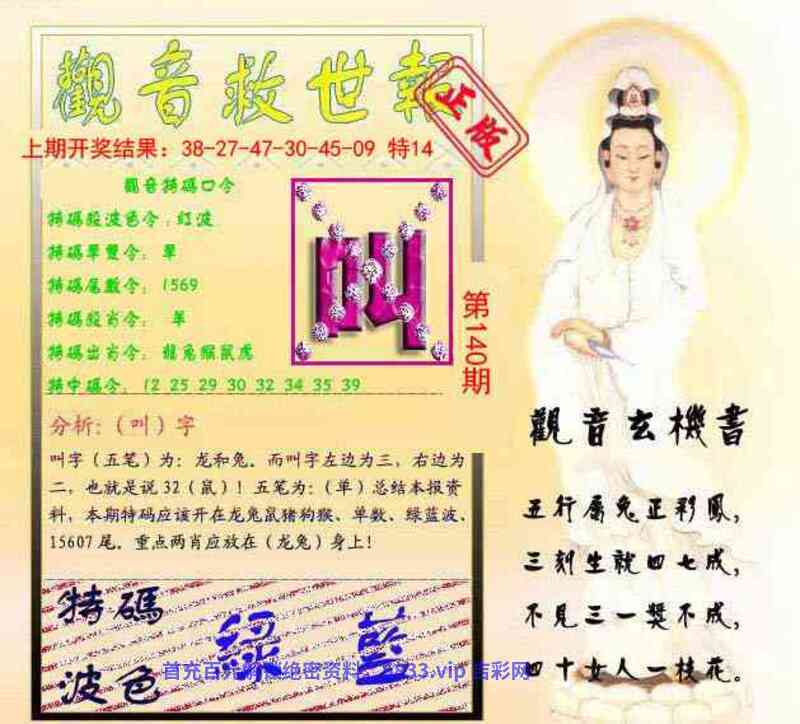 觀音救世報
正版
上期开奖结果：38-27-47-30-45-09 特14
觀音特碼口令
特碼殺波色令：红波
特碼單雙令：單
特碼尾數令：1569
特碼殺肖令：羊
特碼出肖令：龍兔猴鼠虎
特中碼令：12 25 29 30 32 34 35 39
叫
第140期
分析:（叫）字
叫字（五笔）为：龙和兔。而叫字左边为三，右边为
二，也就是说32（鼠）！五笔为：（单）总结本报资
料，本期特码应该开在龙兔鼠猪狗猴、单数、绿蓝波、
15607尾。重点两肖应放在（龙兔）身上！
特碼
波色
綠 藍
吉彩网
觀音玄機書
五行屬兔正彩鳳，
三刻生就四七成，
不見三一獎不成，
四十女人一枝花。